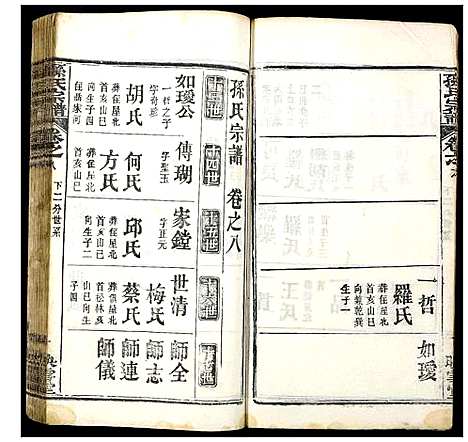 孫氏宗譜
一哲
羅氏
葬住屋北
首亥山巳
向乾巽
生子一
如璦
孫氏宗譜 卷之八
十三世
十四世
十五世
十六世
十七世
如璦公
一哲之子
字奇珍
胡氏
葬住屋北
首亥山巳
向生子四
傳瑚
字聖玉
何氏
葬住屋北
首亥山巳
向生子一
方氏
家鏜
字正元
邱氏
葬住屋北
首亥山巳
向生子二
世清
梅氏
蔡氏
葬住屋北
首松林亥
山巳向生
子四
師全
師志
師連
師儀
孫氏宗譜
卷之八
下二分世系
映雪堂